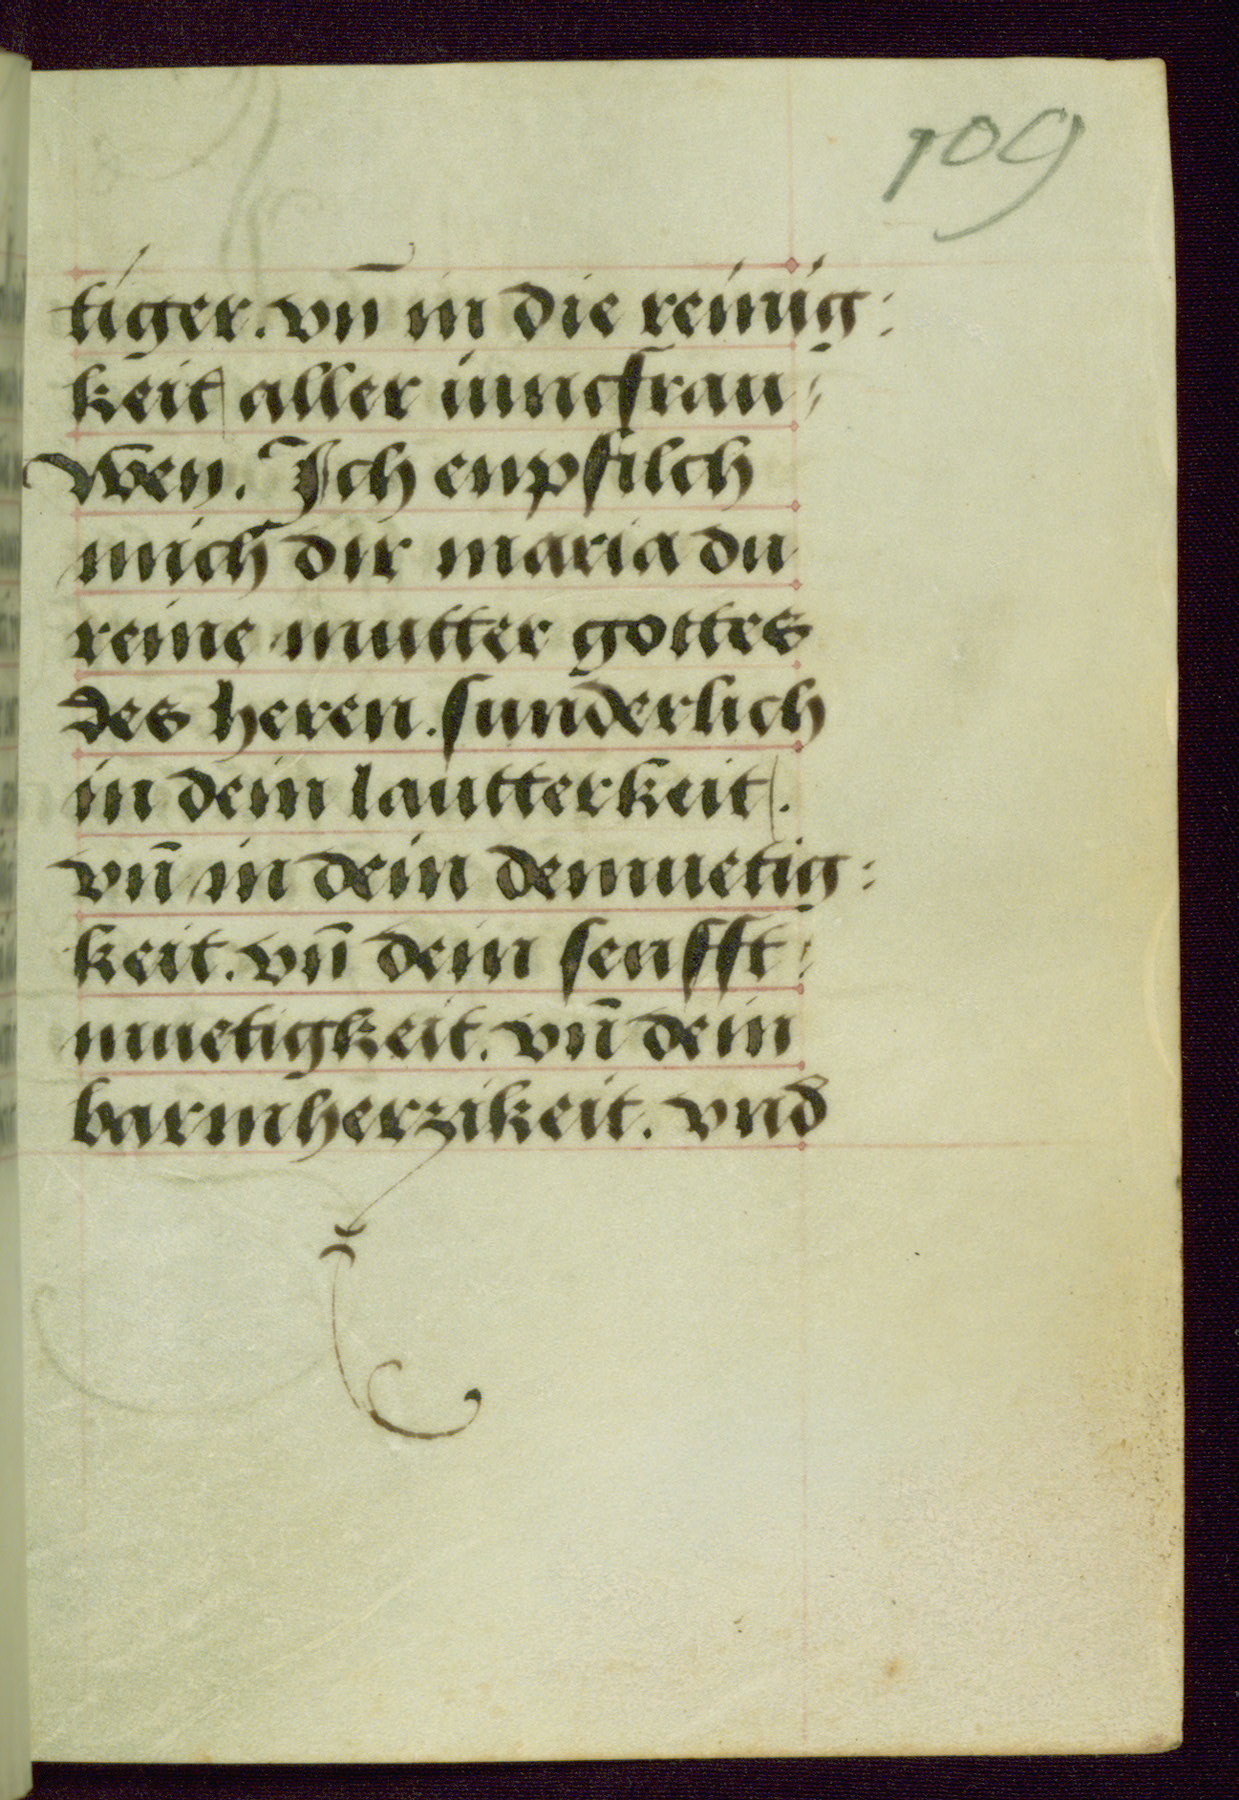 109
tiger. vn̄ in die reinig:
keit aller iuncfrau⸗
wen. Ich enpfilch
mich dir maria du
reine mutter gottes
des heren. sunderlich
in dein lautterkeit.
vn̄ in dein demuetig:
keit. vn̄ dein senfft:
muetigkeit. vn̄ dein
barmherzikeit. vnd